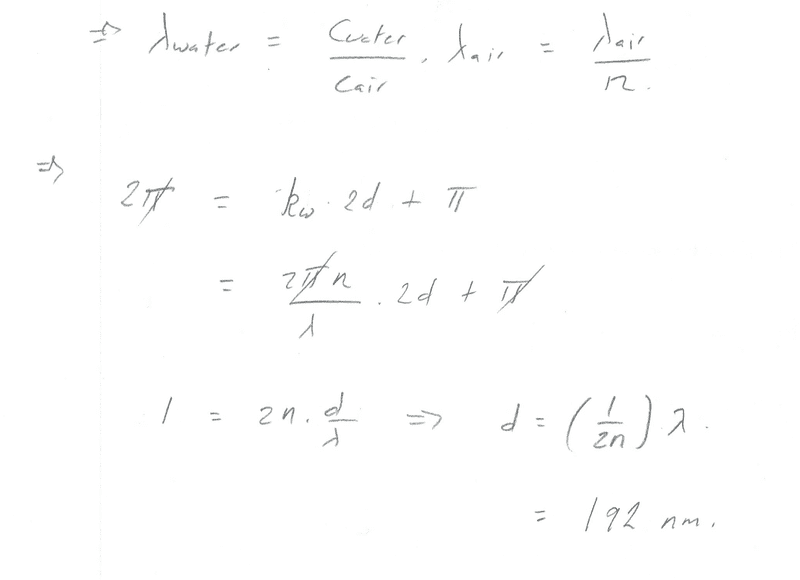 ⇒ λwater = Cwater/Cair . λair = λair/n.
⇒ 2π = kω . 2d + π
= 2πn/λ . 2d + π
1 = 2n. d/λ ⇒ d = (1/2n) λ.
= 192 nm.